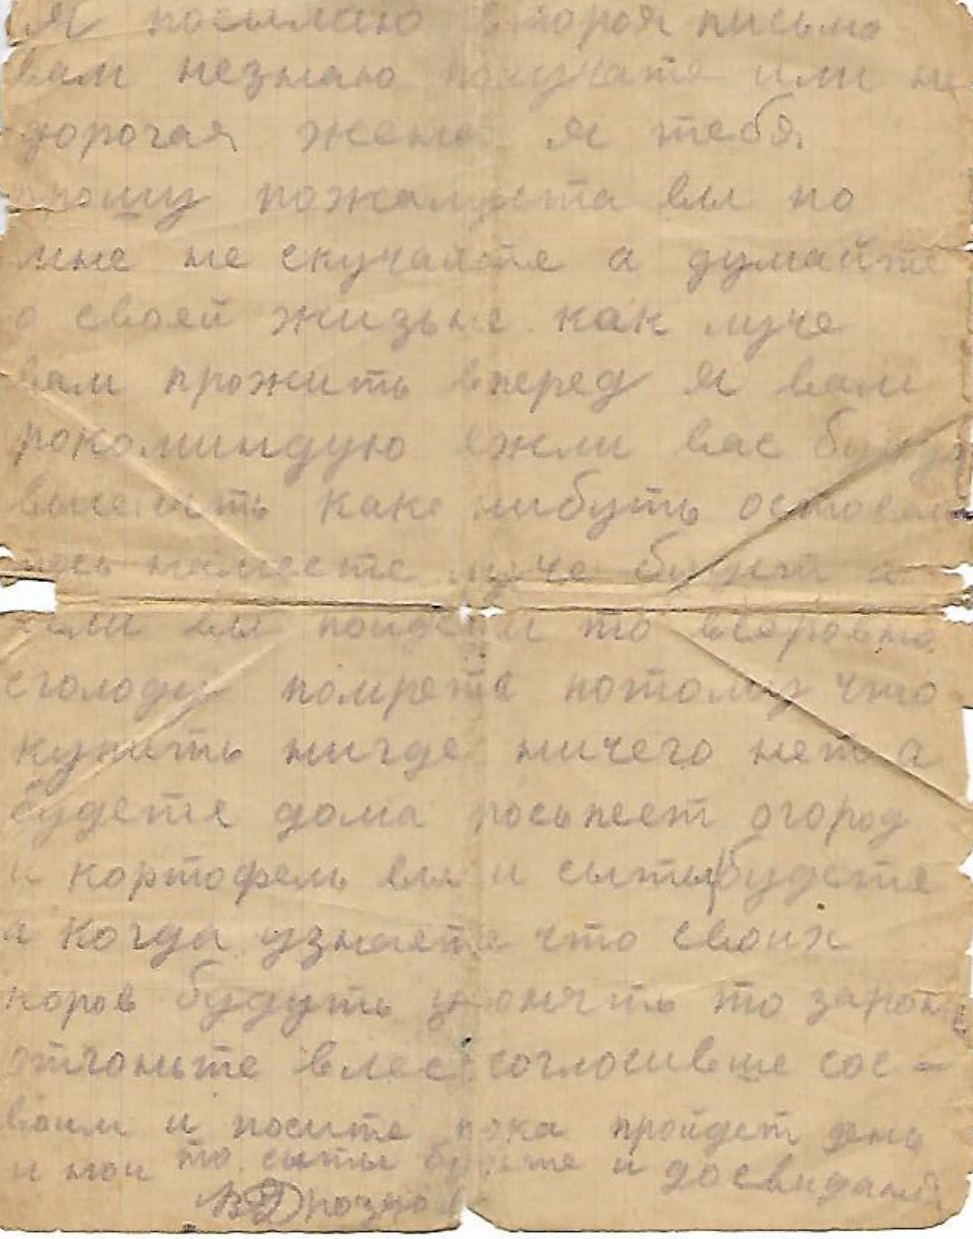 Я посылаю второя письмо
вам незнаю получате или не
дорогая жена я тебя
прошу пожалуста вы по
мне не скучайте а думайте
о своей жизьне как луче
вам прожить вперед я вам
рокоминдую ежли вас будут
выселить как нибуть остов
луче будит а
если вы пойдети то всеровно
сголоду помрете потому что
купить нигде ничего нет а
будете дома посьпеет огород
и кортофель вы и сыты будете
а когда узнаете что своих
коров будуть угонять то заран
отгоньте влес согло­сивше сос-
воим и посите пока пройдет день
и мои то сыты будите и досвидания
В Дрозд